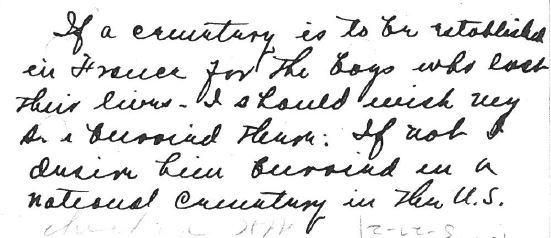 If a cemetary is to be established
in France for the boys who lost
their lives - I should wish my
burried there. If not I
desire him burried in a
national cemetary in the U.S.
12-22-